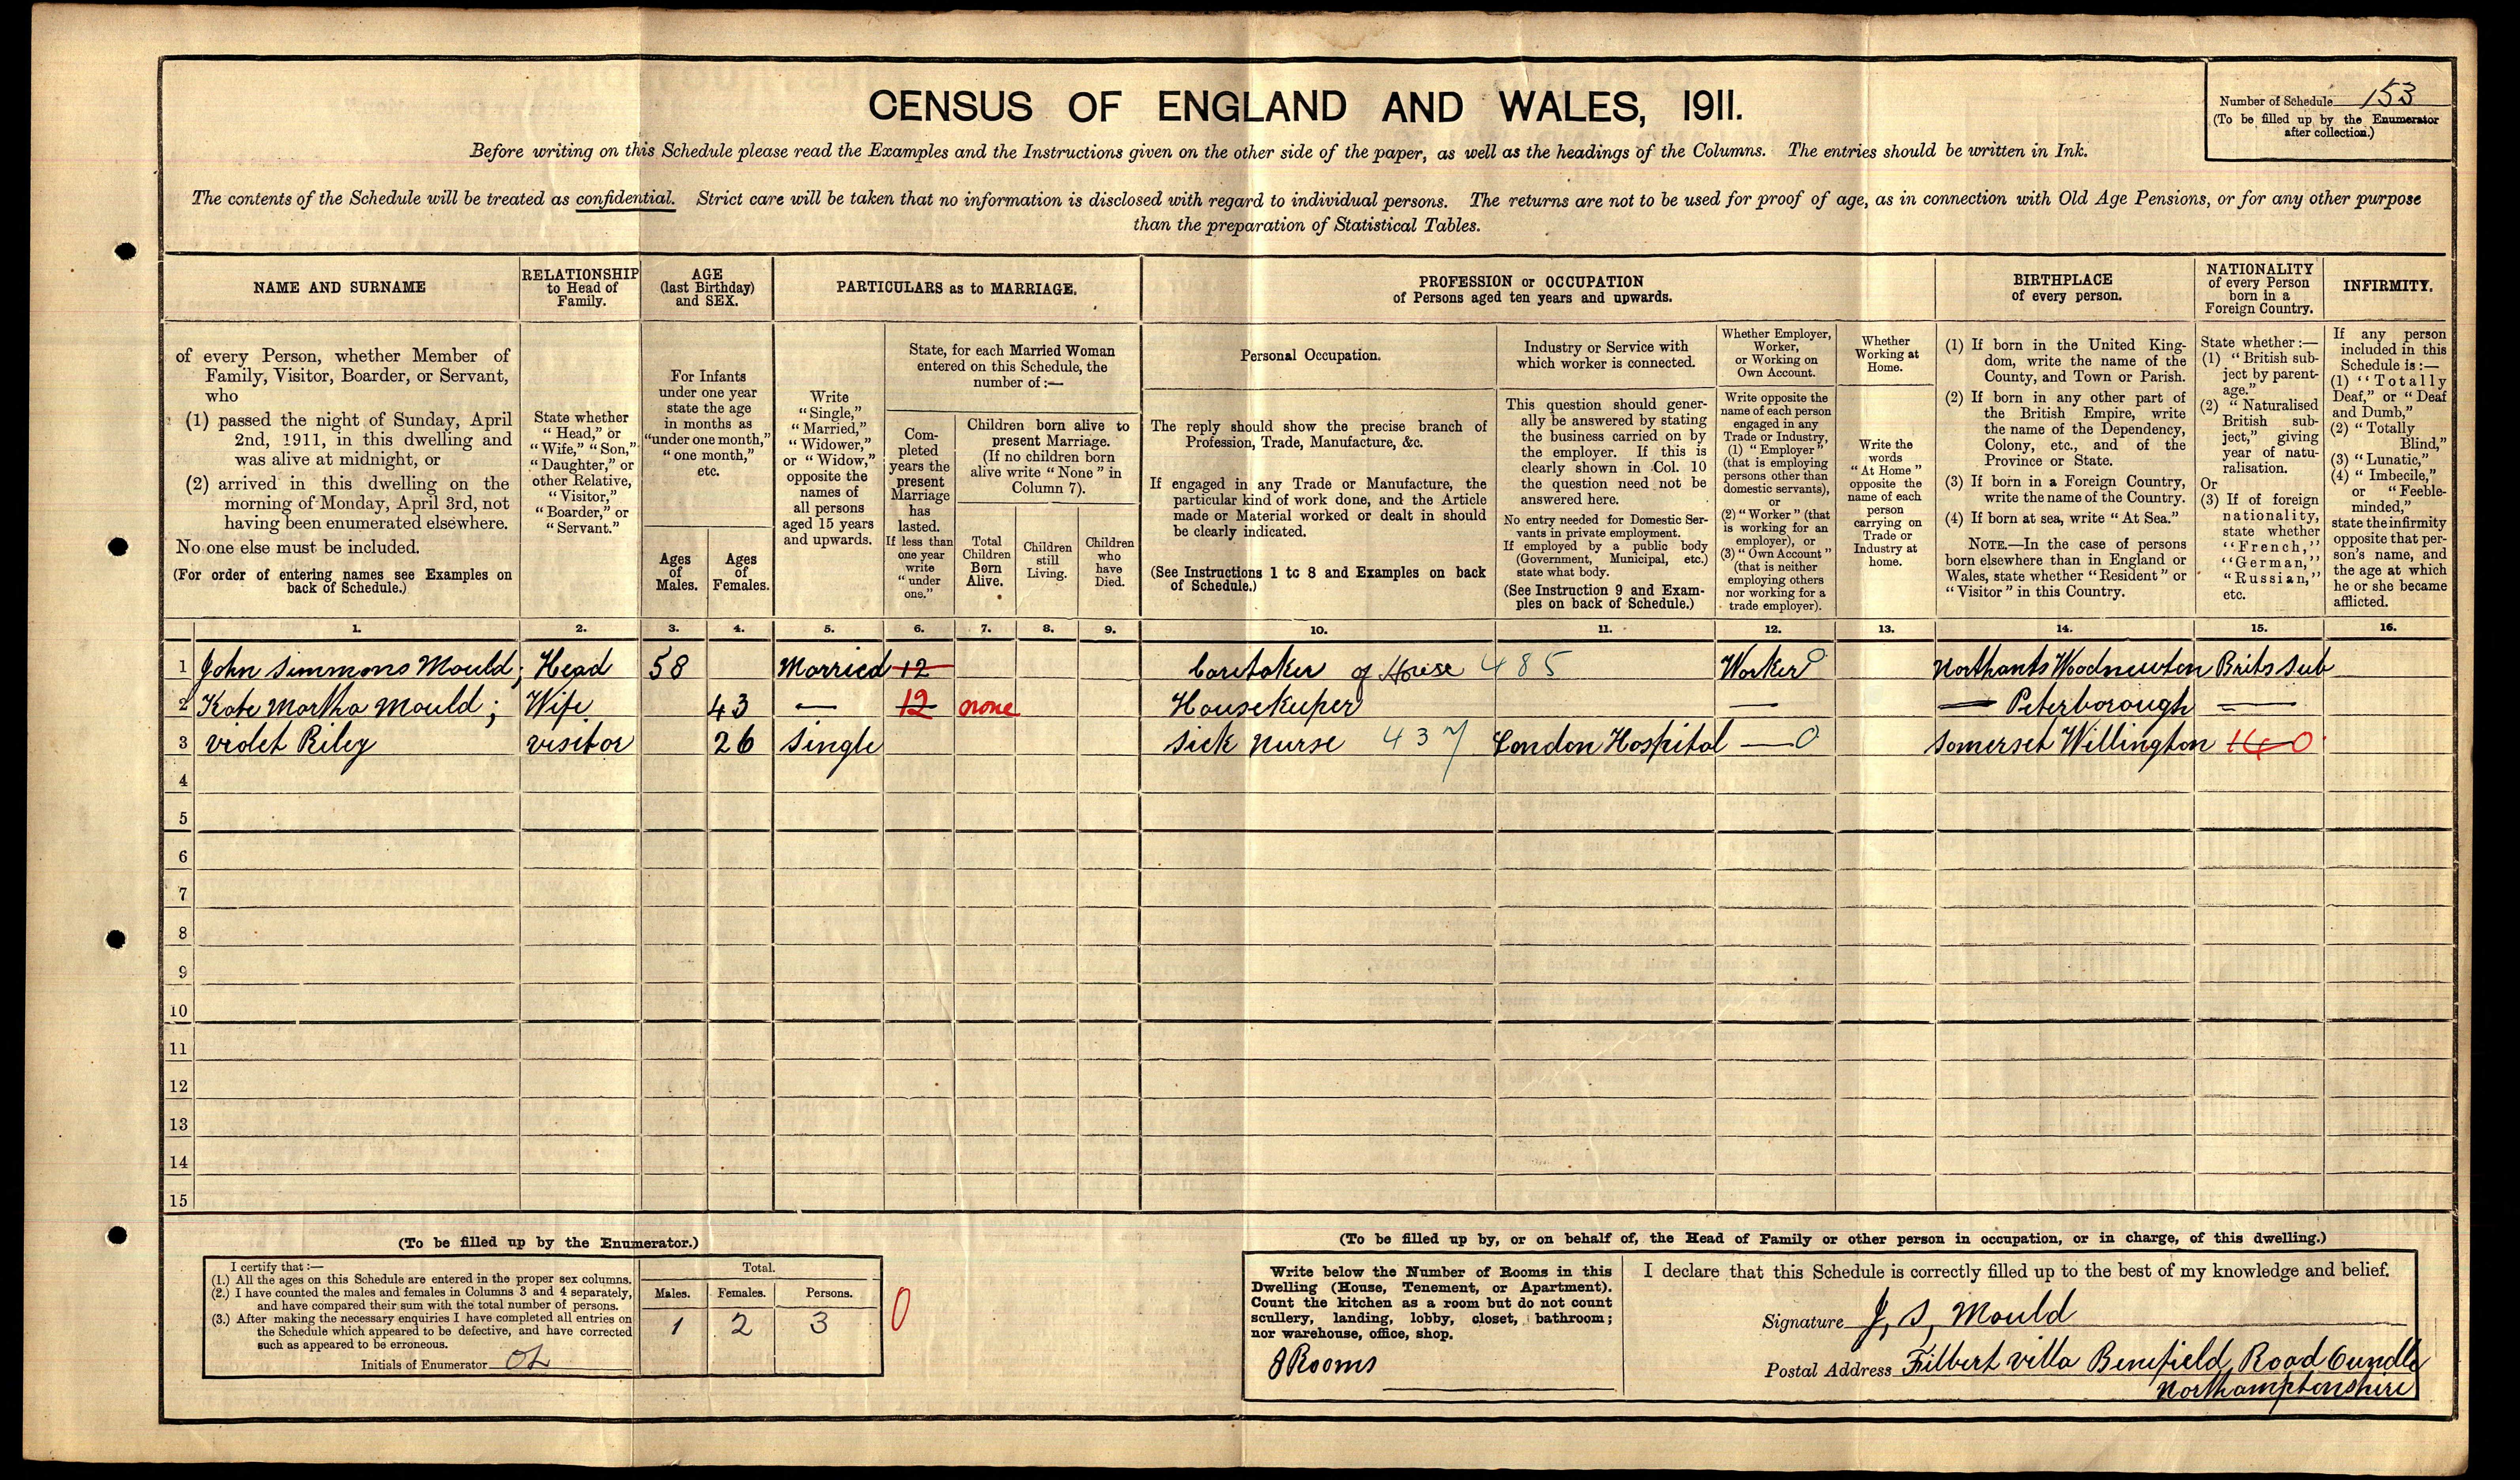 CENSUS OF ENGLAND AND WALES, 1911.
Number of Schedule 153
(To be filled up by the Enumerator
after collection.)
Before writing on this Schedule please read the Examples and the Instructions given on the other side of the paper, as well as the headings of the Columns. The entries should be written in Ink.
The contents of the Schedule will be treated as confidential. Strict care will be taken that no information is disclosed with regard to individual persons. The returns are not to be used for proof of age, as in connection with Old Age Pensions, or for any other purpose
than the preparation of Statistical Tables.
NAME AND SURNAME
of every Person, whether Member of
Family, Visitor, Boarder, or Servant,
who
(1) passed the night of Sunday, April
2nd, 1911, in this dwelling and
was alive at midnight, or
(2) arrived in this dwelling on the
morning of Monday, April 3rd, not
having been enumerated elsewhere.
No one else must be included.
(For order of entering names see Examples on
back of Schedule.)
RELATIONSHIP
to Head of
Family.
State whether
"Head," or
"Wife," "Son,"
"Daughter," or
other Relative,
"Visitor,"
"Boarder," or
"Servant."
AGE
(last Birthday)
and SEX.
For Infants
under one year
state the age
in months as
"under one month,"
"one month,"
etc.
Ages
of
Males.
Ages
of
Females.
PARTICULARS as to MARRIAGE.
Write
"Single,"
"Married,"
"Widower,"
or "Widow,"
opposite the
names of
all persons
aged 15 years
and upwards.
State, for each Married Woman
entered on this Schedule, the
number of :—
Com-
pleted
years the
present
Marriage
has
lasted.
If less than
one year
write
"under
one."
Children born alive to
present Marriage.
(If no children born
alive write "None" in
Column 7).
Total
Children
Born
Alive.
Children
still
Living.
Children
who
have
Died.
PROFESSION or OCCUPATION
of Persons aged ten years and upwards.
Personal Occupation.
The reply should show the precise branch of
Profession, Trade, Manufacture, &c.
If engaged in any Trade or Manufacture, the
particular kind of work done, and the Article
made or Material worked or dealt in should
be clearly indicated.
(See Instructions 1 to 8 and Examples on back
of Schedule.)
Industry or Service with
which worker is connected.
This question should gener-
ally be answered by stating
the business carried on by
the employer. If this is
clearly shown in Col. 10
the question need not be
answered here.
No entry needed for Domestic Ser-
vants in private employment.
If employed by a public body
(Government, Municipal, etc.)
state what body.
(See Instruction 9 and Exam-
ples on back of Schedule.)
Whether Employer,
Worker,
or Working on
Own Account.
Write opposite the
name of each person
engaged in any
Trade or Industry,
(1) "Employer"
(that is employing
persons other than
domestic servants),
or
(2) "Worker" (that
is working for an
employer), or
(3) "Own Account"
(that is neither
employing others
nor working for a
trade employer).
Whether
Working at
Home.
Write the
words
"At Home"
opposite the
name of each
person
carrying on
Trade or
Industry at
home.
BIRTHPLACE
of every person.
(1) If born in the United King-
dom, write the name of the
County, and Town or Parish.
(2) If born in any other part of
the British Empire, write
the name of the Dependency,
Colony, etc., and of the
Province or State.
(3) If born in a Foreign Country,
write the name of the Country.
(4) If born at sea, write "At Sea."
NOTE.—In the case of persons
born elsewhere than in England or
Wales, state whether "Resident" or
"Visitor" in this Country.
NATIONALITY
of every Person
born in a
Foreign Country.
State whether :—
(1) "British sub-
ject by parent-
age."
(2) "Naturalised
British sub-
ject," giving
year of natu-
ralisation.
Or
(3) If of foreign
nationality,
state whether
"French,"
"German,"
"Russian,"
etc.
INFIRMITY.
If any person
included in this
Schedule is :—
(1) "Totally
Deaf," or "Deaf
and Dumb,"
(2) "Totally
Blind,"
(3) "Lunatic,"
(4) "Imbecile,"
or "Feeble-
minded,"
state the infirmity
opposite that per-
son's name, and
the age at which
he or she became
afflicted.
1. 2. 3. 4. 5. 6. 7. 8. 9. 10. 11. 12. 13. 14. 15. 16.
1 John Simmons Mould; Head 58 Married 12 Caretaker of House 485 Worker 0 Northants Woodnewton Brits Sub
2 Kate Martha Mould; Wife 43 — 12 none Housekeeper — — Peterborough —
3 Violet Riley visitor 26 Single Sick Nurse 437 London Hospital — 0 Somerset Willington 140
4
5
6
7
8
9
10
11
12
13
14
15
(To be filled up by the Enumerator.)
I certify that :—
(1.) All the ages on this Schedule are entered in the proper sex columns.
(2.) I have counted the males and females in Columns 3 and 4 separately,
and have compared their sum with the total number of persons.
(3.) After making the necessary enquiries I have completed all entries on
the Schedule which appeared to be defective, and have corrected
such as appeared to be erroneous.
Initials of Enumerator
Total.
Males. Females. Persons.
1 2 3
0
(To be filled up by, or on behalf of, the Head of Family or other person in occupation, or in charge, of this dwelling.)
Write below the Number of Rooms in this
Dwelling (House, Tenement, or Apartment).
Count the kitchen as a room but do not count
scullery, landing, lobby, closet, bathroom;
nor warehouse, office, shop.
8 Rooms
I declare that this Schedule is correctly filled up to the best of my knowledge and belief.
Signature J. S. Mould
Postal Address Filbert villa Benefield Road Oundle
Northamptonshire